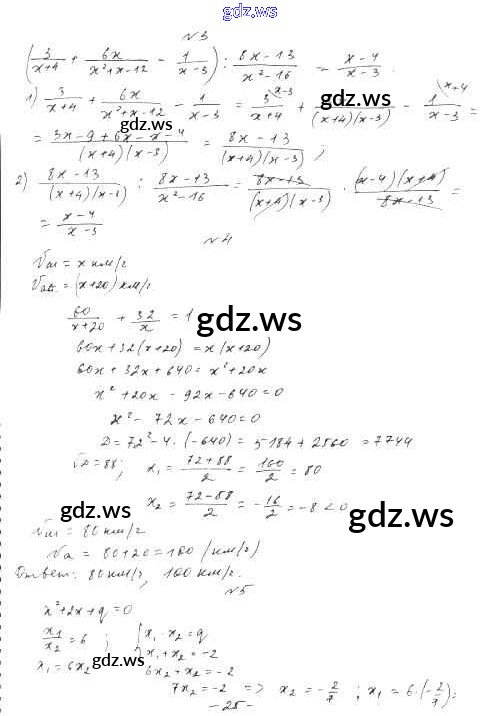 gdz.ws
N3
(3/(x+4) + 6x/(x²+x-12) - 1/(x-3)) : (8x-13)/(x²-16) = (x-4)/(x-3).
1) 3/(x+4) + 6x/(x²+x-12) - 1/(x-3) = 3^(x-3)/(x+4) + /((x+4)(x-3)) - 1^(x+4)/(x-3) =
gdz.ws
gdz.ws
= (3x-9+6x-x-4)/((x+4)(x-3)) = (8x-13)/((x+4)(x-3));
2) (8x-13)/((x+4)(x-3)) : (8x-13)/(x²-16) = (8x-13)/((x+4)(x-3)) · ((x-4)(x+4))/(8x-13) =
= (x-4)/(x-3)
N4
x км/г
= (x+20) км/г.
60/(x+20) + 32/x = 1
gdz.ws
60x+32(x+20) = x(x+20)
60x+32x+640 = x²+20x
x²+20x-92x-640=0
x²-72x-640=0
D = 72²-4·(-640) = 5184+2560 = 7744
√D=88; x₁ = (72+88)/2 = 160/2 = 80
x₂ = (72-88)/2 = -16/2 = -8 < 0
gdz.ws
gdz.ws
= 80 км/г
Vа = 80+20 = 100 (км/г)
Ответ: 80 км/г, 100 км/г.
N5
x²+2x+q=0
x₁/x₂ = 6; { x₁·x₂=q
x₁+x₂=-2
x₁=6x₂ 6x₂+x₂=-2
gdz.ws
gdz.ws
7x₂=-2 => x₂=-2/7; x₁=6·(-2/7);
-25-